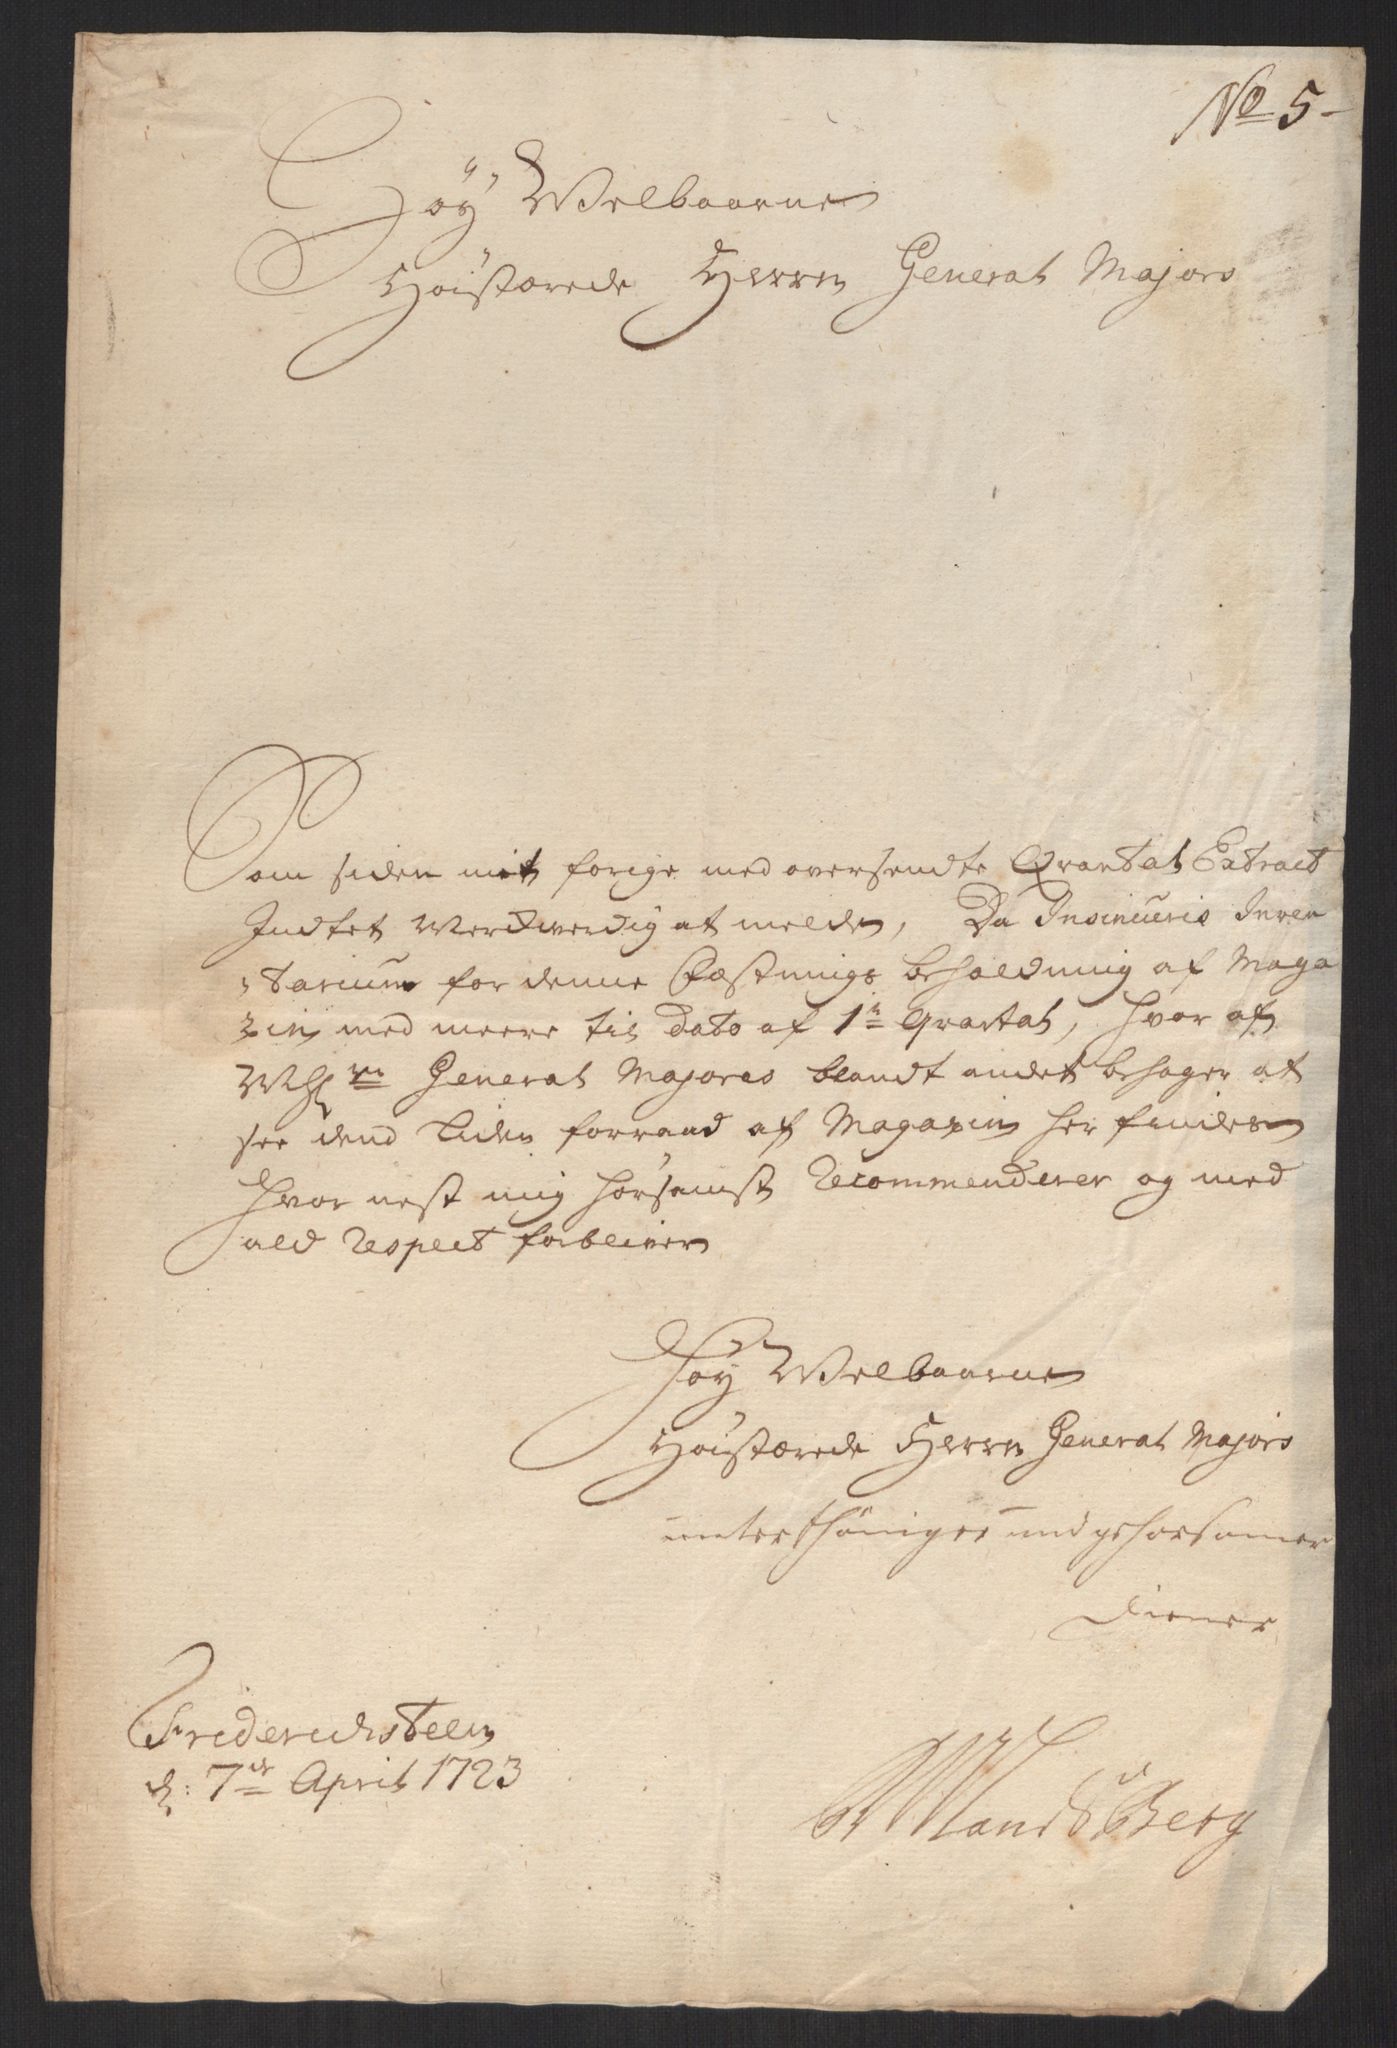 No 5-
Høy Welbaarne
Høistærede Herrn General Majors
Som siden mit forige med oversendte Qvartal Extract
Indtet Merckverdig at melde, Da Insinueris Inven
tarium for denne Fæstnings beholdning af Maga
zin med meere til Dato af 1te Qvartal, hvor af
General Majores blandt andet behager at
see dend Liden forraad af Magazin her findes
Hvor nest mig hörsamst Recommenderer og med
ald Respect forbliver
Høy Welbaarne
Høistærede Herrn General Majors
unterthäniger und gehorsamer
diener
Friderichsteen
d: 7de April 1723
LandsBerg